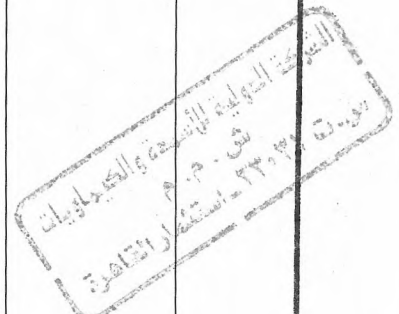 الشركة الدولية للأسمدة والكيماويات
ش . م . م
س . ت ٢٣٠٣٧ - استثمار القاهرة